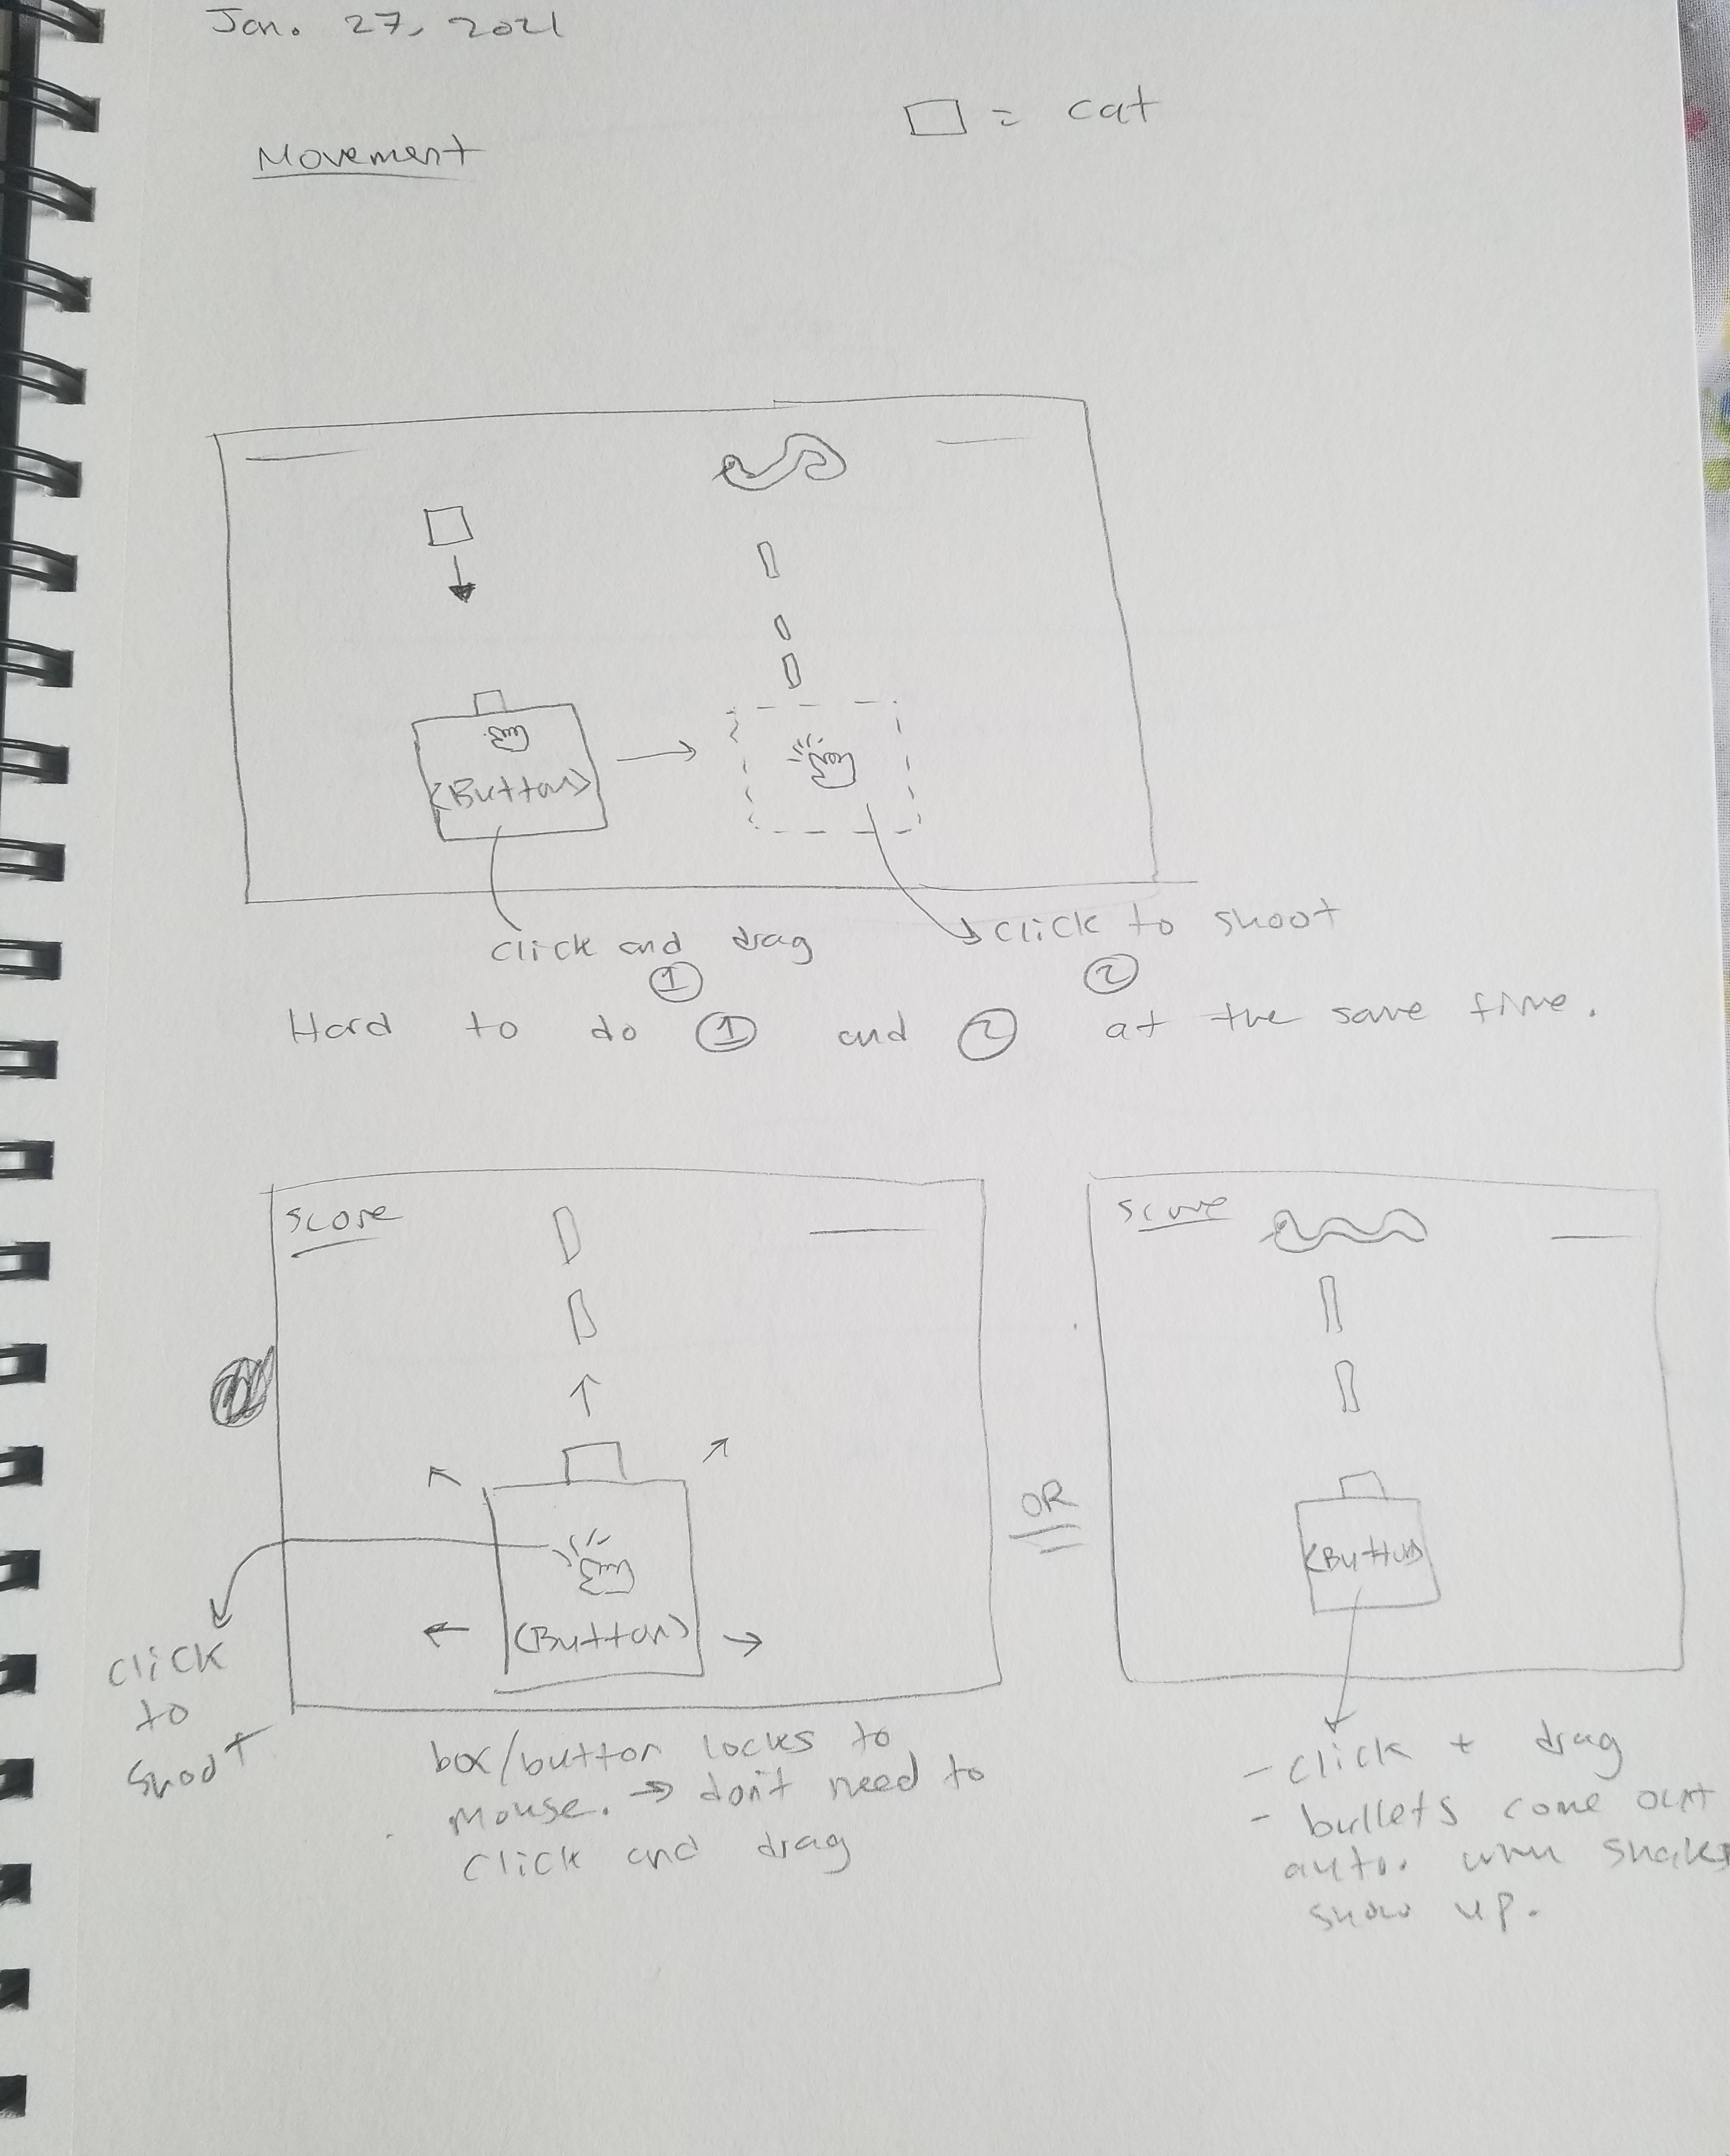 Jan. 27, 2021
□ = cat
Movement
<Button>
click and drag
①
click to shoot
②
Hard to do ① and ② at the same time.
score
<Button>
click
to
shoot
box/button locks to
mouse. → don't need to
click and drag
OR
score
<Button>
- click + drag
- bullets come out
auto. when snakes
show up.